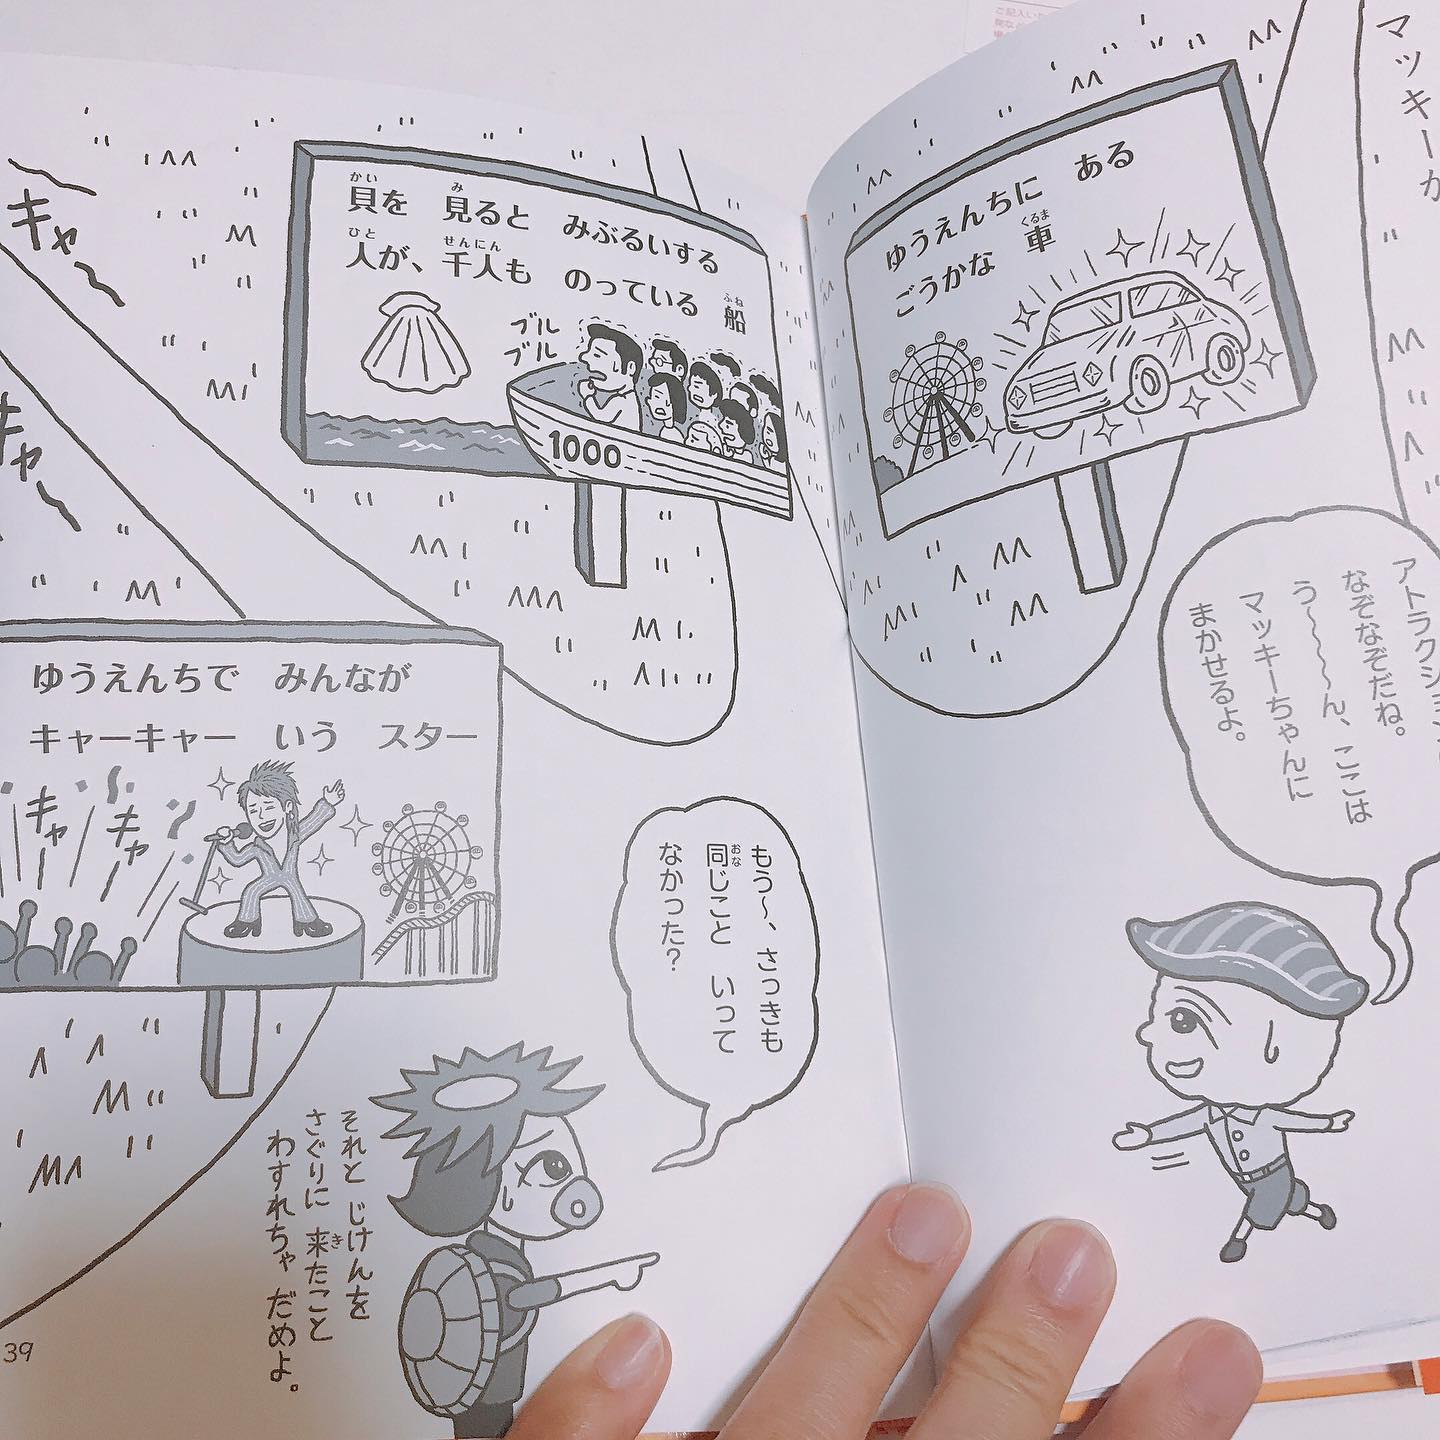 マッキーが
ゆうえんちに ある
ごうかな 車
くるま
アトラクション
なぞなぞだね。
う〜〜〜ん、ここは
マッキーちゃんに
まかせるよ。
貝を 見ると みぶるいする
かい み
人が、千人も のっている 船
ひと せんにん ふね
ブル
ブル
1000
キャ〜
キャ〜
ゆうえんちで みんなが
キャーキャー いう スター
キャー
キャー
もう〜、さっきも
同じこと いって
おな
なかった?
それと じけんを
さぐりに 来たこと
き
わすれちゃ だめよ。
39